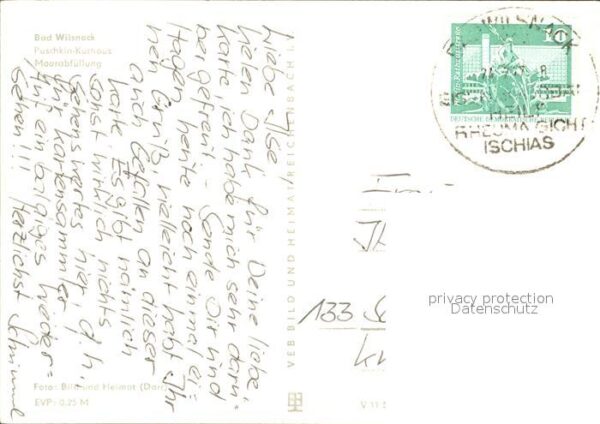 Bad Wilsnack
Puschkin-Kurhaus
Moorabfüllung
Liebe Ilse!
Vielen Dank für Deine liebe
Karte, ich habe mich sehr darü-
ber gefreut. - Sende Dir und
Hagen heute noch einmal ei-
nen Gruß, vielleicht habt Ihr
auch Gefallen an dieser
Karte. Es gibt nämlich
sonst wirklich nichts
Sehenswertes hier, d.h.
für Kartensammler.
Auf ein baldiges Wieder=
sehen!!! Herzlichst
Foto: Bild und Heimat
EVP: 0,25 M
VEB BILD UND HEIMAT REICHENBACH I.
V 11
BAD WILSNACK
RHEUMA GICHT
ISCHIAS
133
privacy protection
Datenschutz